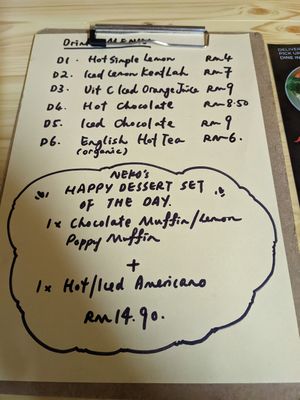 Drinks Menu
D1. Hot Simple Lemon RM 4
D2. Iced Lemon Keat Lah RM 7
D3. Vit C Iced Orange Juice RM 9
D4. Hot Chocolate RM 8.50
D5. Iced Chocolate RM 9
D6. English Hot Tea RM 6.
(organic)
NEKO's
HAPPY DESSERT SET
OF THE DAY.
1x Chocolate Muffin/Lemon
Poppy Muffin
+
1x Hot/Iced Americano
RM 14.90.
DELIVER
PICK U
DINE IN